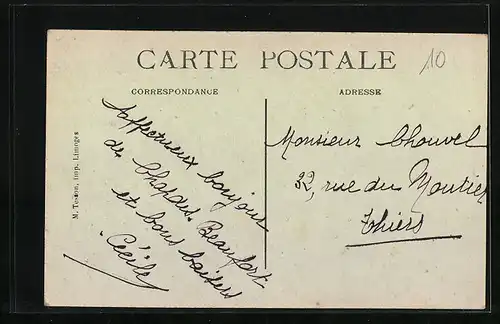 CARTE POSTALE
10
CORRESPONDANCE
ADRESSE
Affectueux bonjour
de Chapdes-Beaufort
et bons baisers
Cécile
Monsieur Chouvel
32, rue du Moutier
Thiers
M. Tesson, imp. Limoges